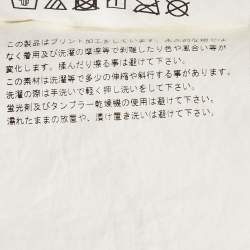 この製品はプリント加工をしています。
なく着用及び洗濯の摩擦等で剥離したり色や風合い等が
変化します。揉んだり擦る事は避けて下さい。
この素材は洗濯等で多少の伸縮や斜行する事があります。
洗濯の際は手洗いで軽く押し洗いをして下さい。
蛍光剤及びタンブラー乾燥機の使用は避けて下さい。
濡れたままの放置や、漬け置き洗いは避けて下さい。